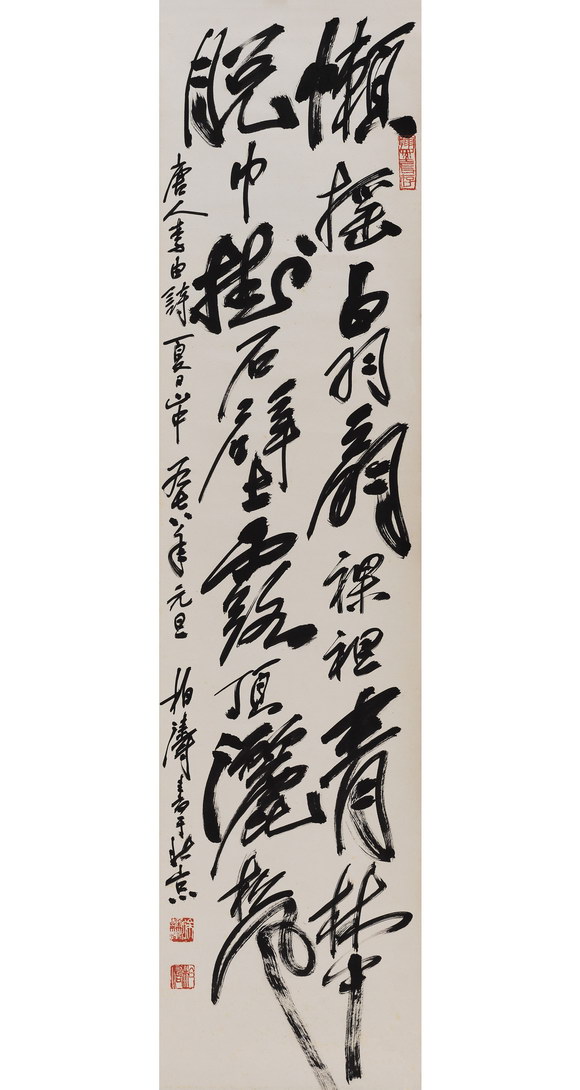 懶搖白羽扇裸袒青林中
脫巾掛石壁露頂灑松風
唐人李白詩夏日山中 一九七八年元旦 柏濤書于北京